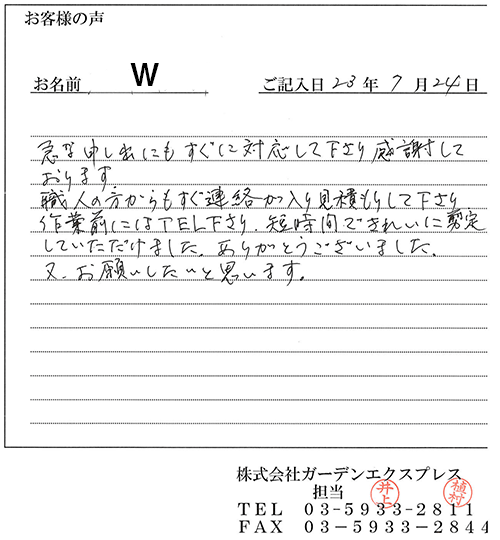 お客様の声
お名前 W ご記入日 23 年 7 月 24 日
急な申し出にもすぐに対応して下さり感謝して
おります。
職人の方からもすぐ連絡が入り見積もりして下さり
作業前にはTEL下さり、短時間できれいに剪定
していただけました。ありがとうございました。
又、お願いしたいと思います。
株式会社ガーデンエクスプレス
担当 井上 植村
TEL 03-5933-2811
FAX 03-5933-2844